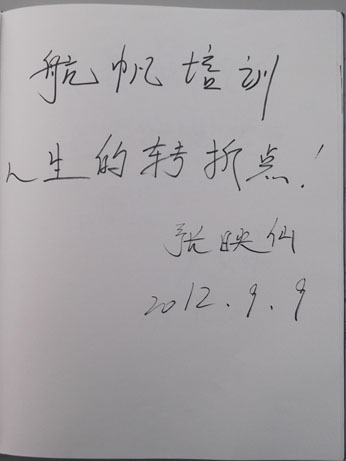 航帆培训
人生的转折点！
张映仙
2012.9.9